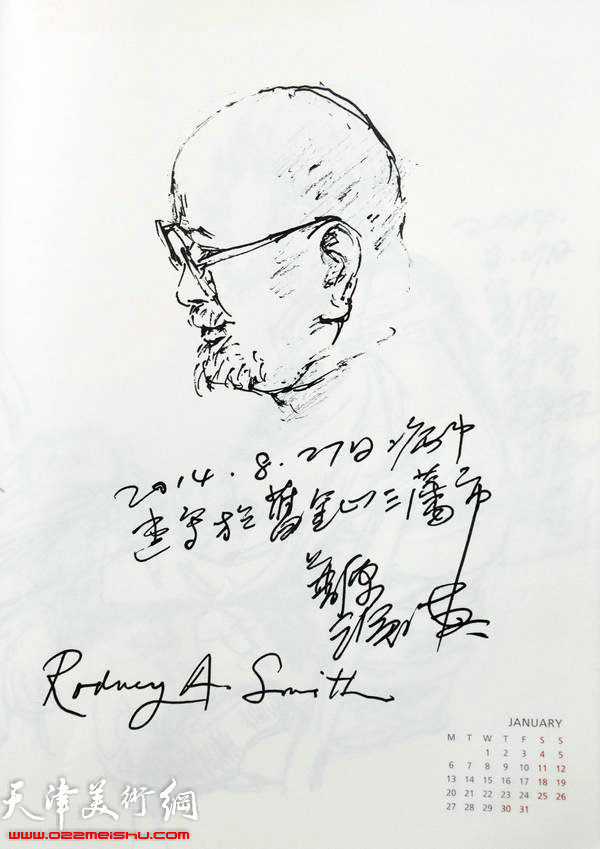 2014.8.27日
速写於舊金山三藩市
Rodney A. Smith
JANUARY
M T W T F S S
1 2 3 4 5
6 7 8 9 10 11 12
13 14 15 16 17 18 19
20 21 22 23 24 25 26
27 28 29 30 31
天津美術網
www.022meishu.com